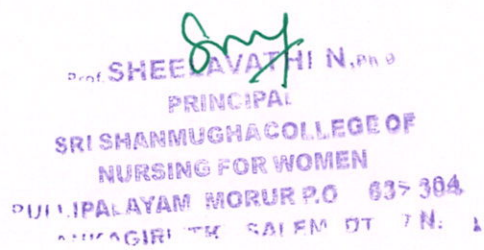 Prof. SHEELAVATHI N, Ph.D
PRINCIPAL
SRI SHANMUGHA COLLEGE OF
NURSING FOR WOMEN
PULLIPALAYAM MORUR P.O 637 304
SALEM DT